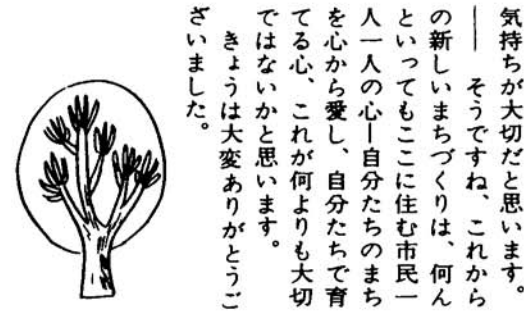 気持ちが大切だと思います。
―― そうですね、これから
の新しいまちづくりは、何ん
といってもここに住む市民一
人一人の心―自分たちのまち
を心から愛し、自分たちで育
てる心、これが何よりも大切
ではないかと思います。
きょうは大変ありがとうご
ざいました。